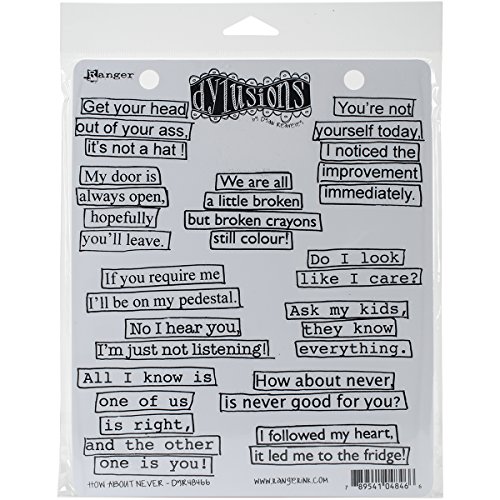 Ranger
dylusions
by Dyan Reaveley
Get your head
out of your ass,
it's not a hat !
You're not
yourself today,
I noticed the
improvement
immediately.
My door is
always open,
hopefully
you'll leave.
We are all
a little broken
but broken crayons
still colour!
Do I look
like I care?
If you require me
I'll be on my pedestal.
Ask my kids,
they know
everything.
No I hear you,
I'm just not listening!
All I know is
one of us
is right,
and the other
one is you!
How about never,
is never good for you?
I followed my heart,
it led me to the fridge!
HOW ABOUT NEVER - DYR48466
WWW.RANGERINK.COM
7 89541 04846 6